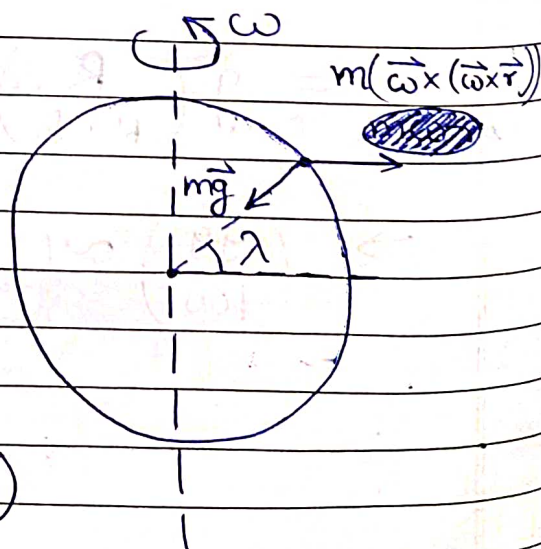 ω
m(ω⃗×(ω⃗×r⃗))
mg⃗
λ